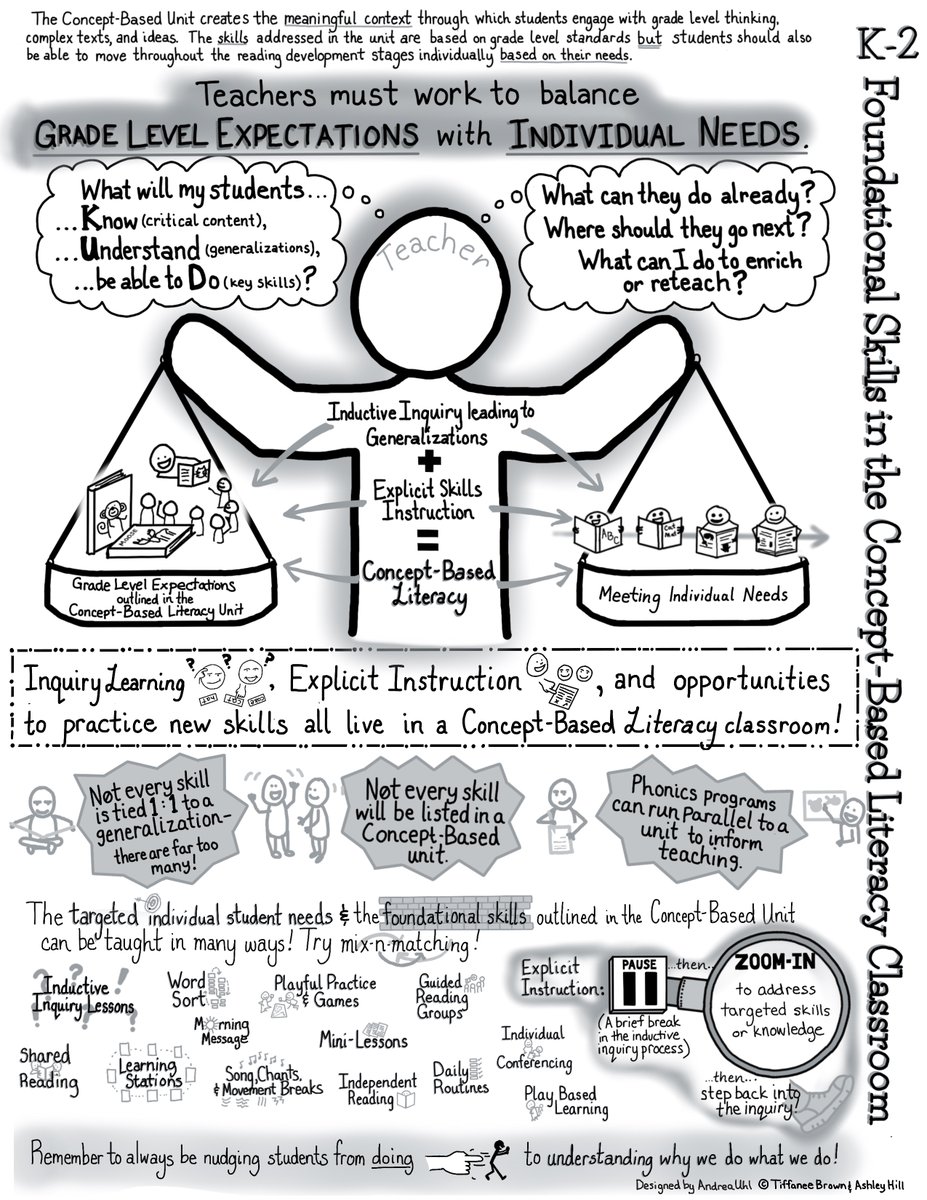 The Concept-Based Unit creates the meaningful context through which students engage with grade level thinking,
complex texts, and ideas. The skills addressed in the unit are based on grade level standards but students should also
be able to move throughout the reading development stages individually based on their needs.
K-2 Foundational Skills in the Concept-Based Literacy Classroom
Teachers must work to balance
GRADE LEVEL EXPECTATIONS with INDIVIDUAL NEEDS.
What will my students...
...Know (critical content),
...Understand (generalizations),
...be able to Do (key skills)?
Teacher
What can they do already?
Where should they go next?
What can I do to enrich
or reteach?
Inductive Inquiry leading to
Generalizations
+
Explicit Skills
Instruction
=
Concept-Based
Literacy
ABC
Grade Level Expectations
outlined in the
Concept-Based Literacy Unit
Meeting Individual Needs
Inquiry Learning ? ? ?, Explicit Instruction, and opportunities
to practice new skills all live in a Concept-Based Literacy classroom!
Not every skill
is tied 1:1 to a
generalization-
there are far too
many!
Not every skill
will be listed in a
Concept-Based
unit.
Phonics programs
can run parallel to a
unit to inform
teaching.
The targeted individual student needs & the foundational skills outlined in the Concept-Based Unit
can be taught in many ways! Try mix-n-matching!
Inductive
Inquiry Lessons
Word
Sort
Playful Practice
& Games
Guided
Reading
Groups
Morning
Message
Mini-Lessons
Individual
Conferencing
Shared
Reading
Learning
Stations
Song, Chants,
& Movement Breaks
Independent
Reading
Daily
Routines
Play Based
Learning
Explicit
Instruction:
PAUSE
(A brief break
in the inductive
inquiry process)
...then...
ZOOM-IN
to address
targeted skills
or knowledge
...then...
step back into
the inquiry!
Remember to always be nudging students from doing to understanding why we do what we do!
Designed by Andrea Uhl © Tiffanee Brown & Ashley Hill